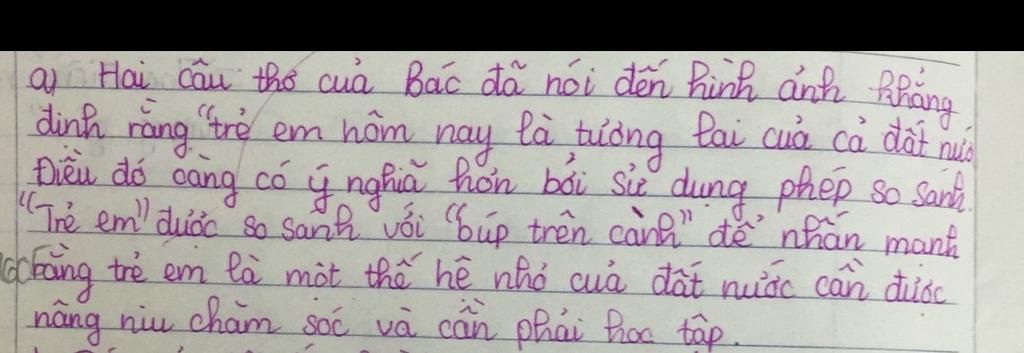 a) Hai câu thơ của Bác đã nói đến hình ảnh khẳng
định rằng "trẻ em hôm nay là tương lai của cả đất nước
Điều đó càng có ý nghĩa hơn bởi sử dụng phép so sánh.
"Trẻ em" được so sánh với "búp trên cành" để nhấn mạnh
rằng trẻ em là một thế hệ nhỏ của đất nước cần được
nâng niu chăm sóc và cần phải học tập.